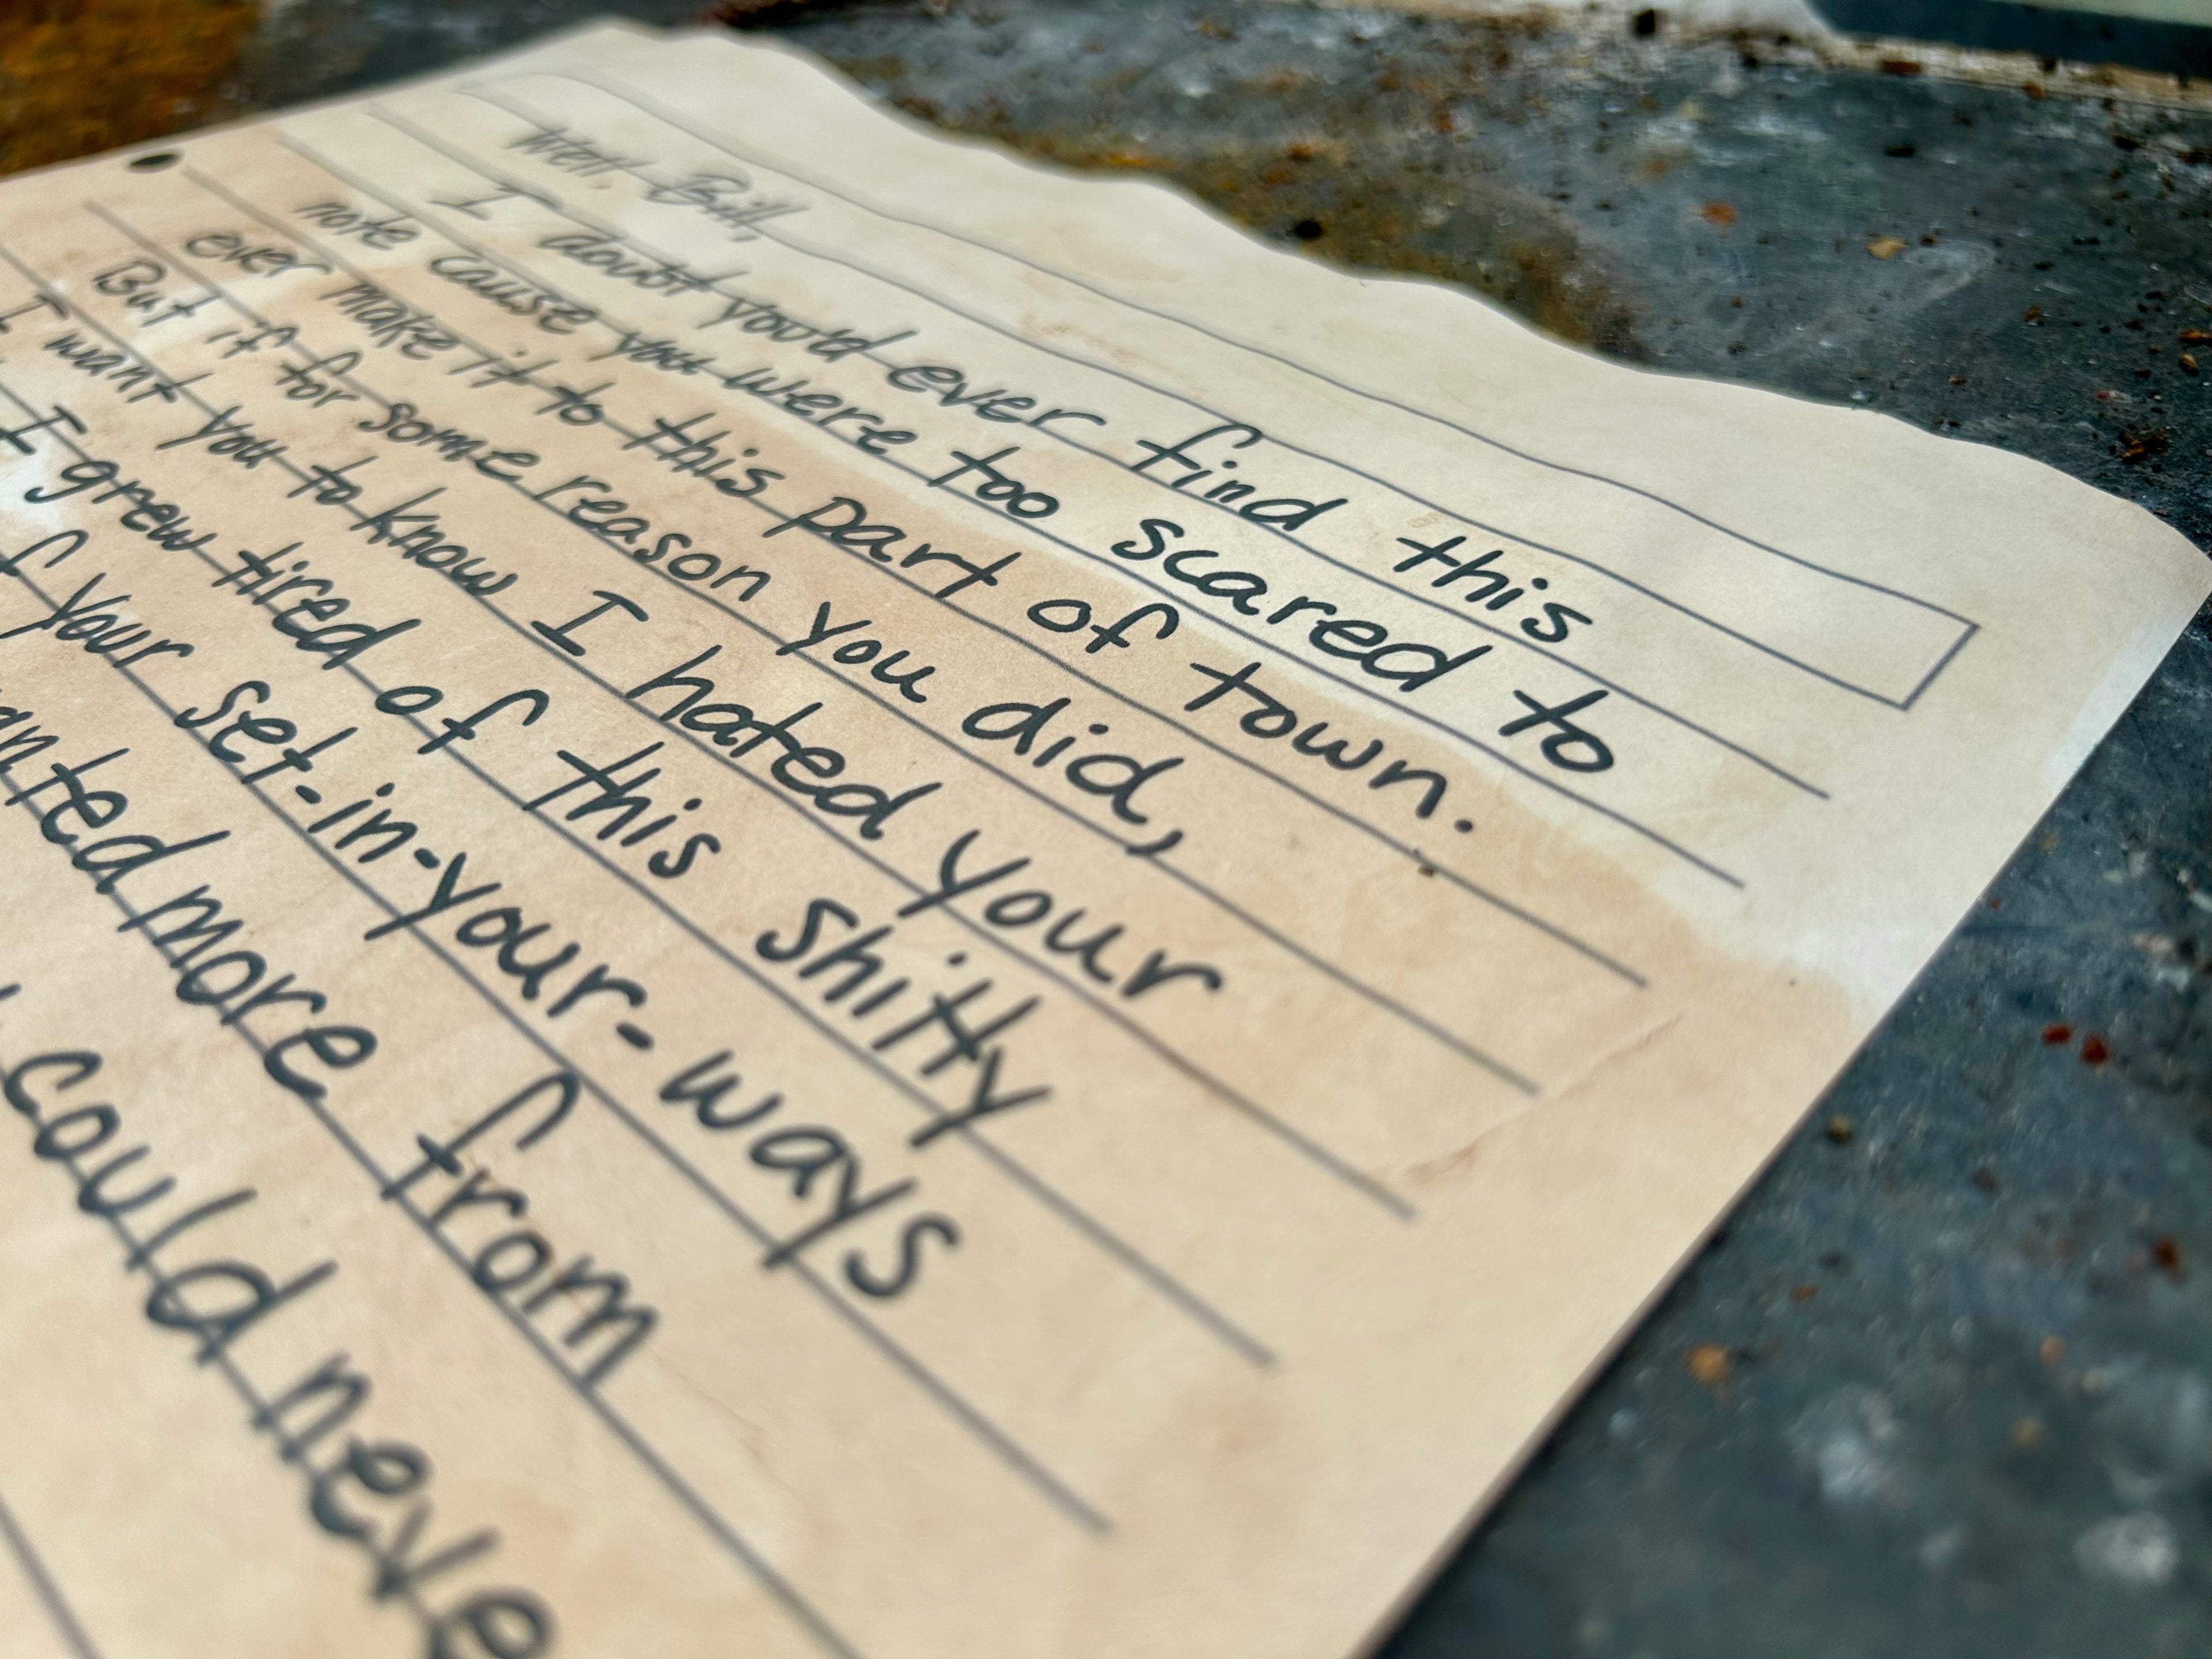 Well, Bill,
I doubt you'd ever find this
note cause you were too scared to
ever make it to this part of town.
But if for some reason you did,
I want you to know I hated your
I grew tired of this shitty
your set-in-your-ways
more from
could neve